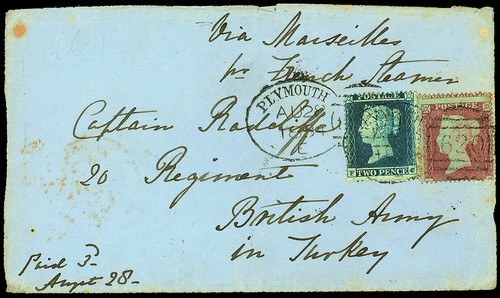 (6)
Via Marseilles
pr French Steamer
PLYMOUTH
AU 28
Captain Radcliffe
POSTAGE
TWO PENCE
POSTAGE
620
20 Regiment
British Army
in Turkey
Paid 3d
Augst 28-